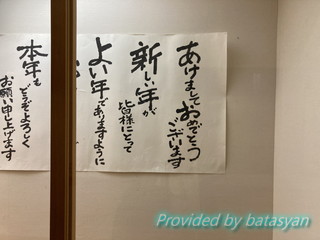 あけましておめでとう
ございます
新しい年が
皆様にとって
よい年でありますように
本年も
どうぞよろしく
お願い申し上げます
Provided by batasyan